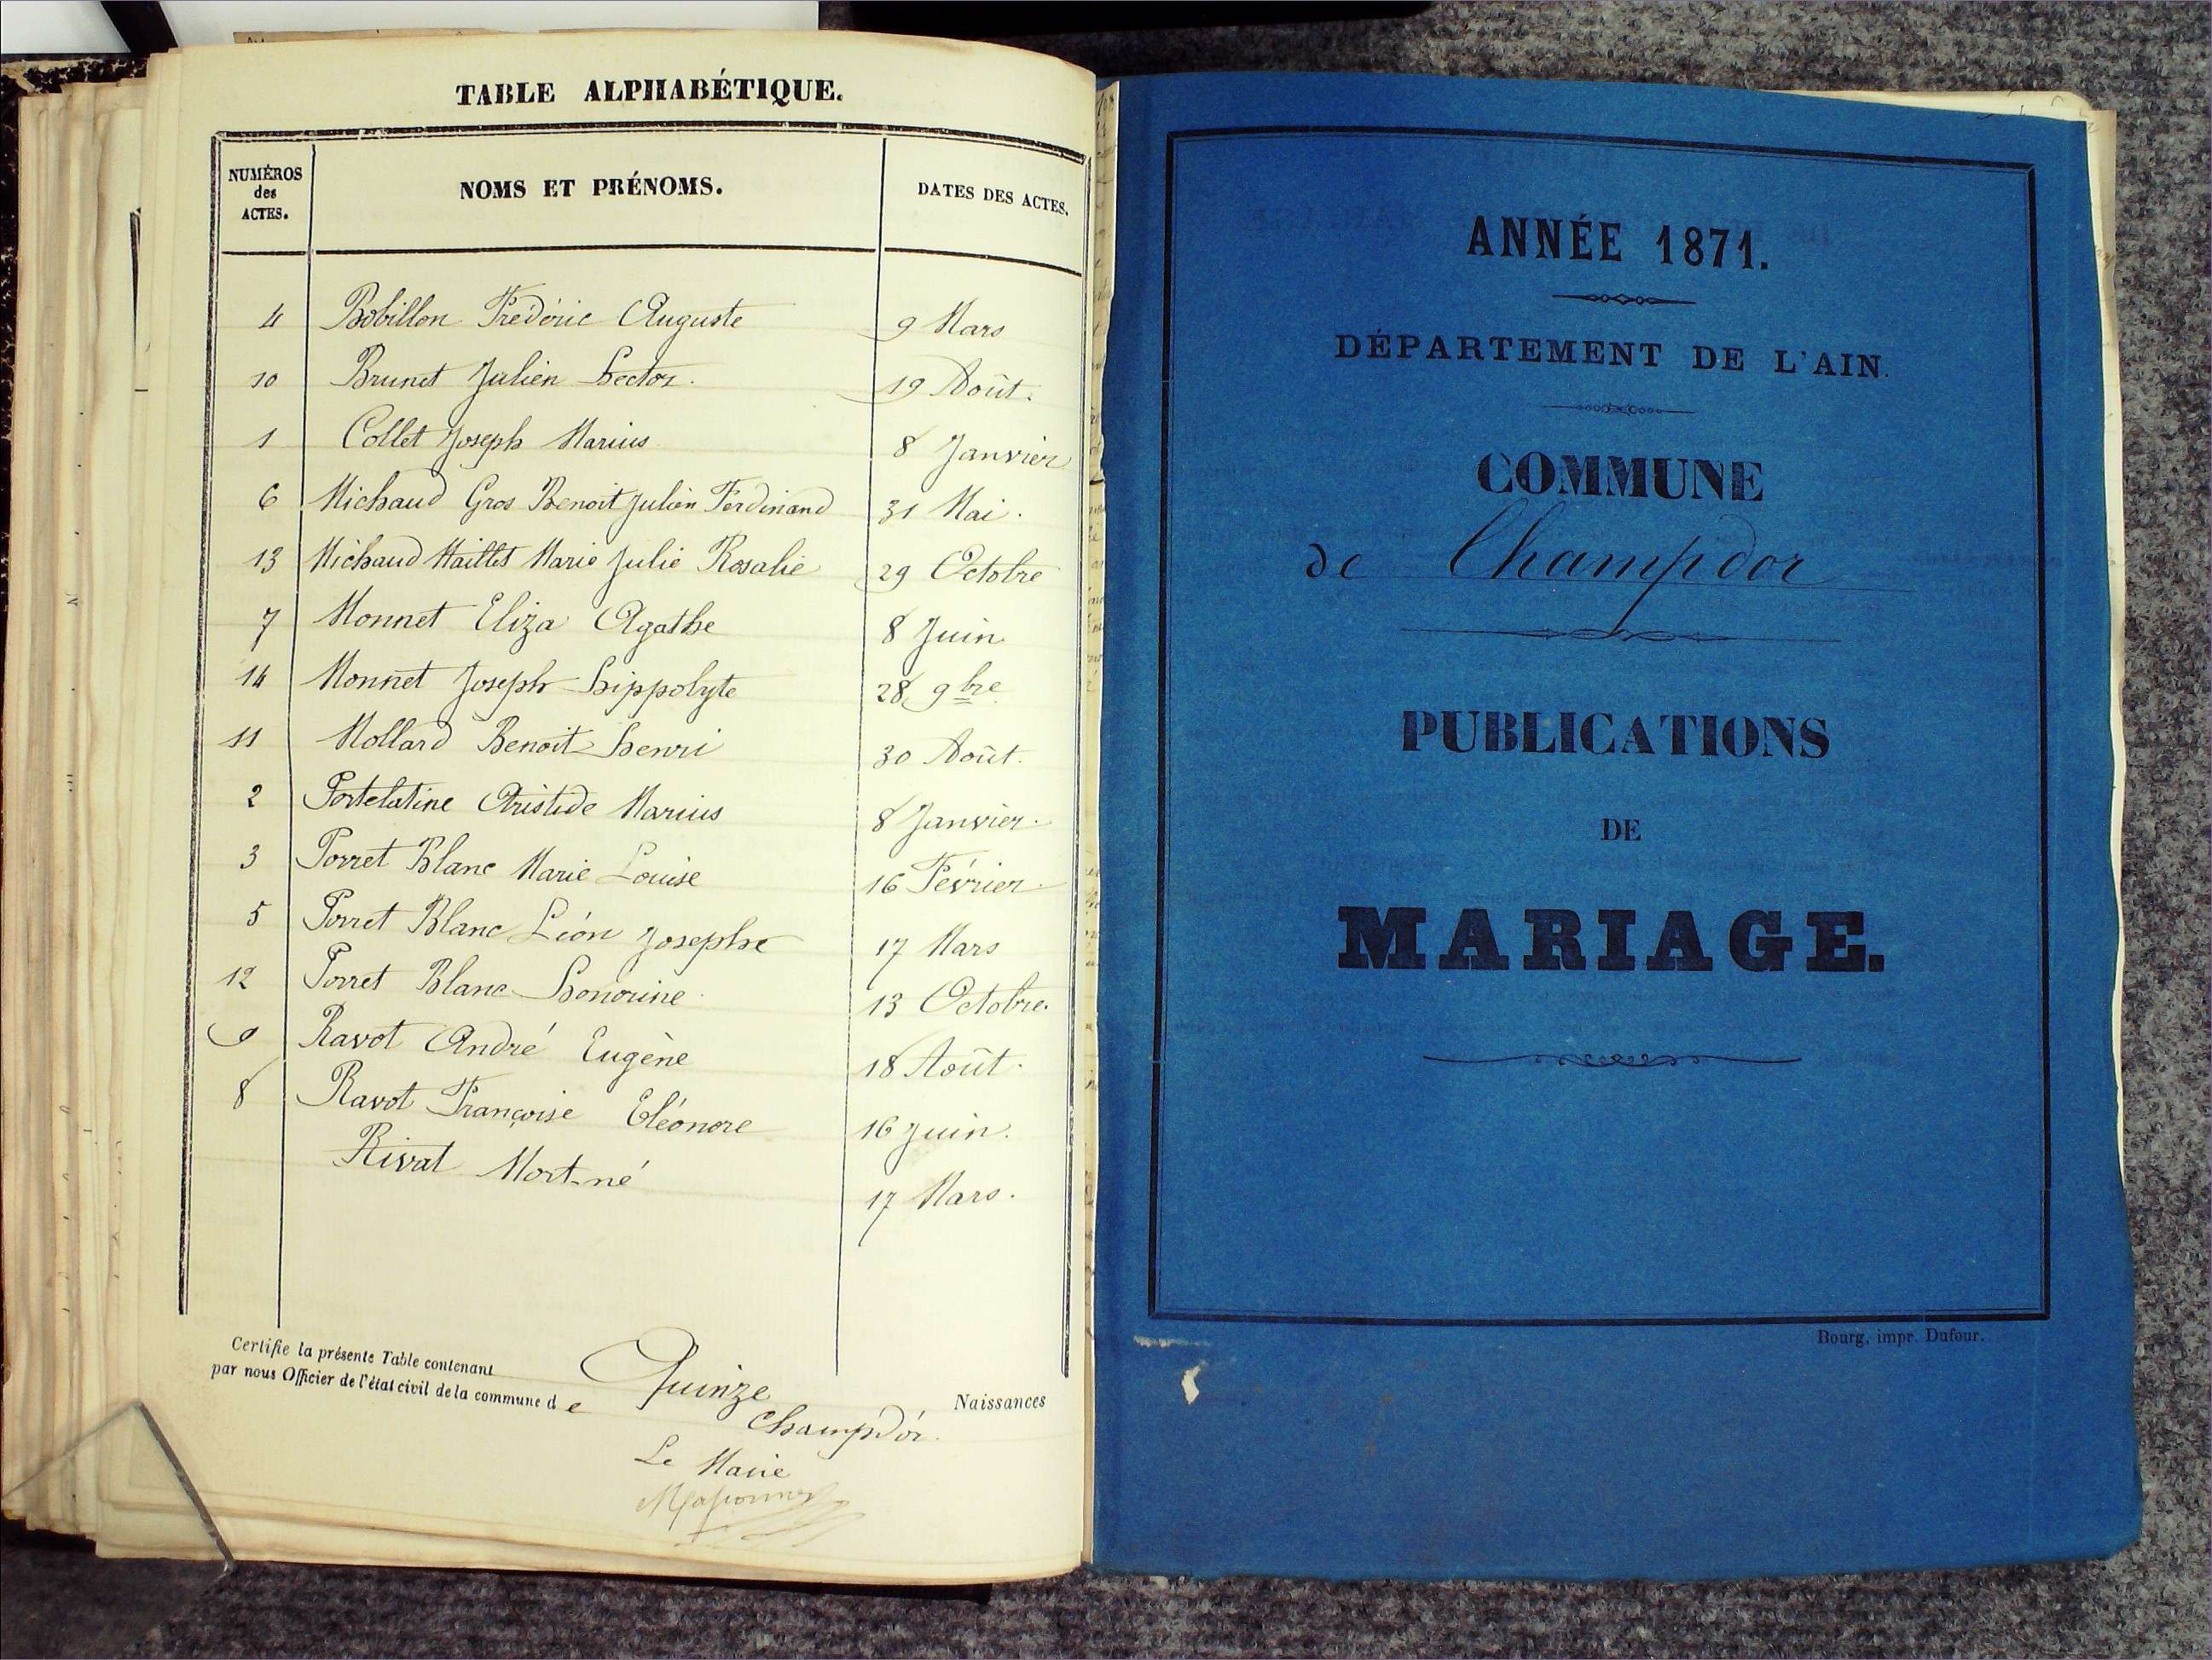 TABLE ALPHABÉTIQUE.
NUMÉROS des ACTES. NOMS ET PRÉNOMS. DATES DES ACTES.
4 Bobillon Frédéric Auguste 9 Mars
10 Brunet Julien hector. 19 Août.
1 Collet Joseph Marius 8 Janvier
6 Michaud Gros Benoit Julien Ferdinand 31 Mai.
13 Michaud Maillet Marie Julie Rosalie 29 Octobre
7 Monnet Eliza Agathe 8 Juin
14 Monnet Joseph hippolyte 28 9bre
11 Mollard Benoit henri 30 Août.
2 Portelatine Aristide Marius 8 Janvier.
3 Porret Blanc Marie Louise 16 Février.
5 Porret Blanc Léon Josephe 17 Mars
12 Porret Blanc honorine. 13 Octobre.
9 Ravot André Eugène 18 Août.
8 Ravot Françoise Eléonore 16 Juin.
Rivat Mort-né 17 Mars.
Certifie la présente Table contenant Quinze Naissances
par nous Officier de l'état civil de la commune de Champd'or.
Le Maire
ANNÉE 1871.
DÉPARTEMENT DE L'AIN.
COMMUNE
de Champdor
PUBLICATIONS
DE
MARIAGE.
Bourg, impr. Dufour.